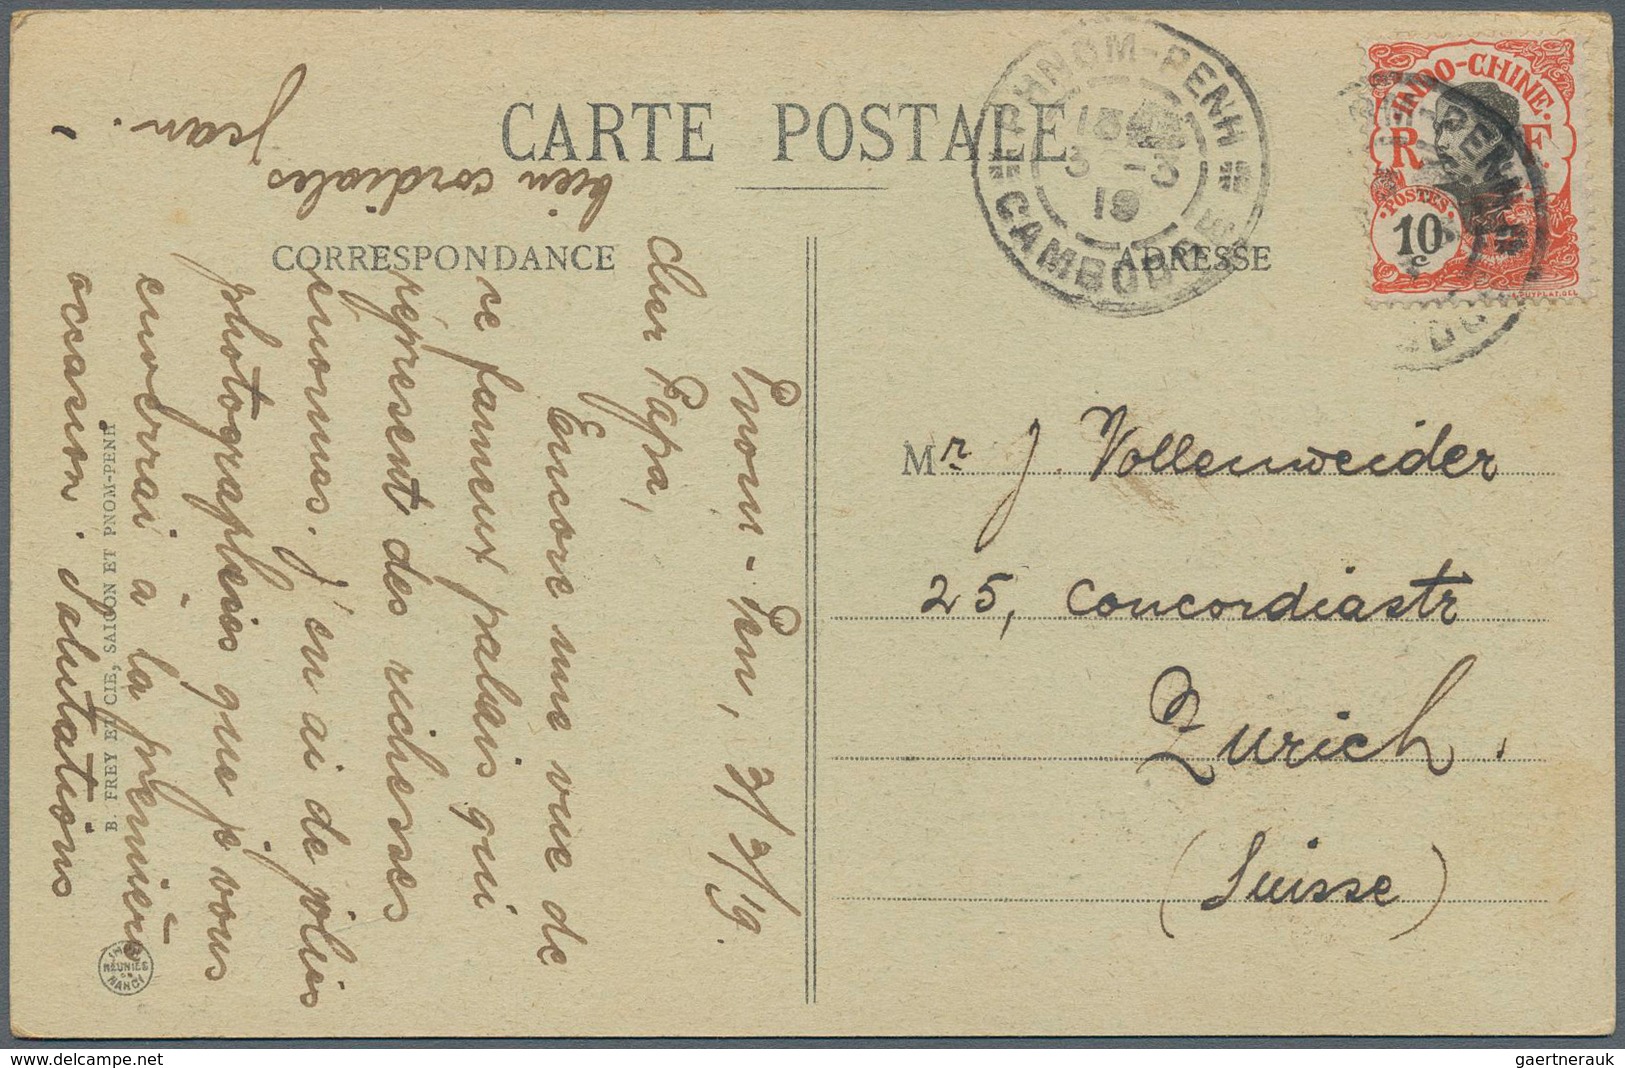 CARTE POSTALE
CORRESPONDANCE
ADRESSE
PHNOM-PENH
3 -3
19
CAMBODGE
INDO-CHINE
R F
POSTES
10
c
PUYPLAT. DEL
Pnom-Pen, 3/3/19.
Cher Papa,
Encore une vue de
ce fameux palais qui
représent des richesses
énormes. J'en ai de jolies
photographies que je vous
enverrai à la première
occasion. Salutations
bien cordiales
Jean.
Mr. J Vollenweider
25, Concordiastr
Zurich.
(Suisse)
B. FREY ET CIE, SAIGON ET PNOM-PENH
IMPies
REUNIES
DE
NANCY
gaertnerauk @ delcampe.net